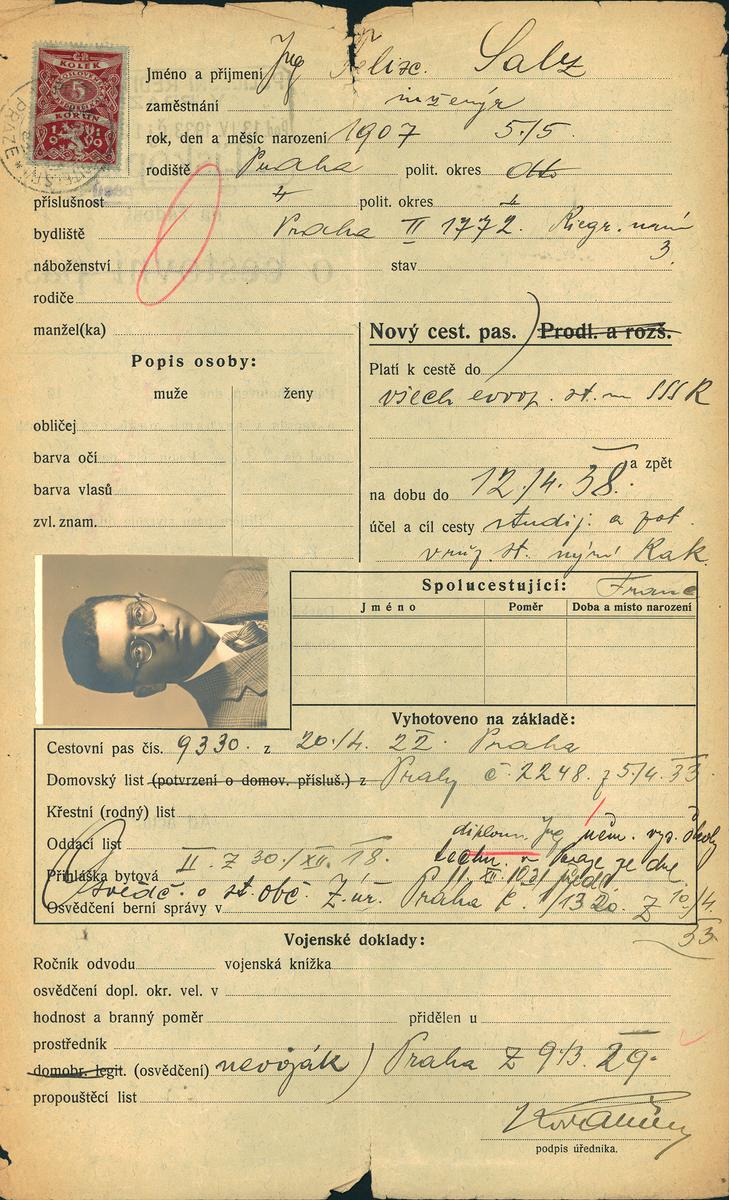 ČR
KOLEK
5
KORUN
19 19
PRAZE
Jméno a příjmení Jng Felix. Salz
zaměstnání inženýr
rok, den a měsíc narození 1907 5./5.
rodiště Praha polit. okres dtto
příslušnost polit. okres
bydliště Praha II 1772. Riegr. nám
3.
náboženství stav
rodiče
manžel(ka)
Nový cest. pas. ) Prodl. a rozš.
Popis osoby:
Platí k cestě do
muže ženy
všech evrop. st. SSSR
obličej
barva očí a zpět
barva vlasů
na dobu do 12./4. 38.
zvl. znam.
účel a cíl cesty studij. a
st. nyní Rak.
Franc
Spolucestující:
Jméno Poměr Doba a místo narození
Vyhotoveno na základě:
Cestovní pas čís. 9330. z 20./4. Praha
Domovský list (potvrzení o domov. přísluš.) z Prahy č. 2248. z 5/4. 33.
Křestní (rodný) list
Oddací list
diplom. Jng něm. vys. školy
techn. v Praze ze dne
Přihláška bytová II. Z 30./XII. 18.
Osvědč. o st. obč. Z. úř. Praha č. 1320. Z 10/4.
33
Osvědčení berní správy v
Vojenské doklady:
Ročník odvodu vojenská knížka
osvědčení dopl. okr. vel. v
hodnost a branný poměr přidělen u
prostředník
domobr. legit. (osvědčení) nevoják ) Praha Z 9./3. 29.
propouštěcí list
podpis úředníka.